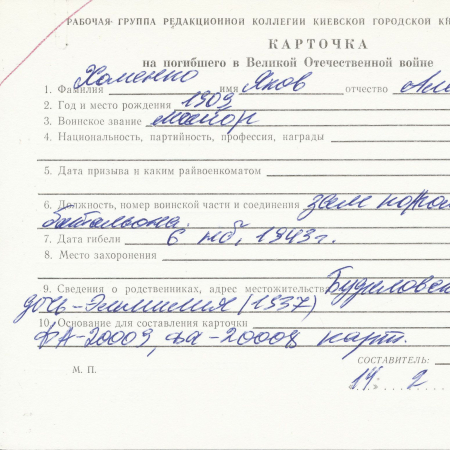 РАБОЧАЯ ГРУППА РЕДАКЦИОННОЙ КОЛЛЕГИИ КИЕВСКОЙ ГОРОДСКОЙ
КАРТОЧКА
на погибшего в Великой Отечественной войне
1. Фамилия Хоменко имя Яков отчество
2. Год и место рождения 1909
3. Воинское звание майор
4. Национальность, партийность, профессия, награды
5. Дата призыва и каким райвоенкоматом
6. Должность, номер воинской части и соединения зам
батальона.
7. Дата гибели 6 1943 г.
8. Место захоронения
9. Сведения о родственниках, адрес местожительства
дочь - (1937)
10. Основание для составления карточки
-20009, -20008 карт.
СОСТАВИТЕЛЬ:
М. П. 2